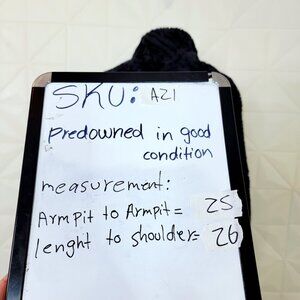 SKU: AZ1
predowned in good
condition
measurement:
Armpit to Armpit = 25
lenght to shoulder= 26